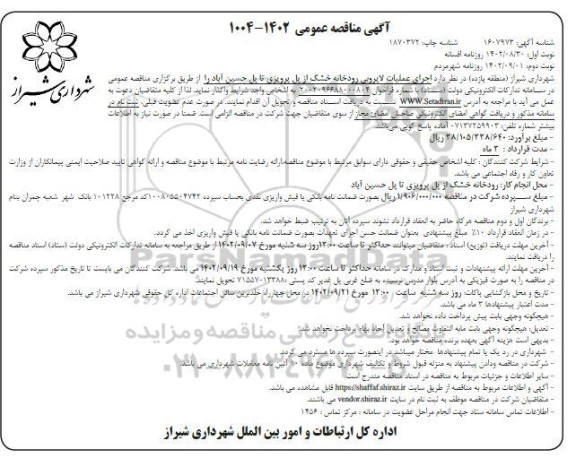 آگهی مناقصه عمومی ۱۴۰۲-۱۰۰۴
شناسه آگهی: ۱۶۰۷۹۷۳ شناسه چاپ: ۱۸۷۰۳۷۲
نوبت اول: ۱۴۰۲/۰۸/۳۰ روزنامه افسانه
نوبت دوم: ۱۴۰۲/۰۹/۰۱ روزنامه شهرمردم
شهرداری شیراز
شهرداری شیراز (منطقه یازده) در نظر دارد اجرای عملیات لایروبی رودخانه خشک از پل پرویزی تا پل حسین آباد را از طریق برگزاری مناقصه عمومی
در سامانه تدارکات الکترونیکی دولت (ستاد) با شماره فراخوان ۲۰۰۲۰۹۶۶۸۸۰۰۰۸۰۴ به اشخاص واجد شرایط واگذار نماید. لذا از کلیه متقاضیان دعوت به
عمل می آید با مراجعه به آدرس WWW.Setadiran.ir نسبت به دریافت اسناد مناقصه و تحویل آن اقدام نمایند. در صورت عدم عضویت قبلی، ثبت نام در
سامانه مذکور و دریافت گواهی امضای الکترونیکی صاحبان امضای مجاز از سوی متقاضیان جهت شرکت در مناقصه الزامی است. ضمنا در صورت نیاز به اطلاعات
بیشتر شماره تلفن: ۰۷۱۳۷۲۵۹۹۰۳ آماده پاسخ گویی می‌باشد.
- مبلغ برآورد: ۳۸/۱۰۵/۳۳۸/۶۴۰ ریال
- مدت قرارداد: ۳ ماه
- شرایط شرکت کنندگان: کلیه اشخاص حقیقی و حقوقی دارای سوابق مرتبط با موضوع مناقصه/ارائه رضایت نامه مرتبط با موضوع مناقصه و ارائه گواهی تایید صلاحیت ایمنی پیمانکاران از وزارت
تعاون کار و رفاه اجتماعی می باشد.
- محل انجام کار: رودخانه خشک از پل پرویزی تا پل حسین آباد
- مبلغ سپرده شرکت در مناقصه ۱/۹۰۶/۰۰۰/۰۰۰ ریال بصورت ضمانت نامه بانکی یا فیش واریزی نقدی بحساب سپرده ۱۰۰۸۰۵۵۰۴۷۴۲ کد مرجع ۱۰۱۲۳۸ بانک شهر شعبه چمران بنام
شهرداری شیراز
- برندگان اول و دوم مناقصه هرگاه حاضر به انعقاد قرارداد نشوند سپرده آنان به ترتیب ضبط خواهد شد.
- در زمان انعقاد قرارداد ۱۰٪ مبلغ پیشنهادی بعنوان ضمانت حسن اجرای تعهدات بصورت ضمانت نامه بانکی یا فیش واریزی اخذ می گردد.
- آخرین مهلت دریافت (توزیع) اسناد: متقاضیان میتوانند حداکثر تا ساعت ۱۳:۰۰ روز سه شنبه مورخ ۱۴۰۲/۰۹/۰۷ از طریق مراجعه به سامانه تدارکات الکترونیکی دولت (ستاد) اسناد مناقصه
را دریافت نمایند.
- آخرین مهلت ارائه پیشنهادات و ثبت اسناد و مدارک در سامانه حداکثر تا ساعت ۱۳:۰۰ روز یکشنبه مورخ ۱۴۰۲/۰۹/۱۹ می باشد. شرکت کنندگان می بایست تا تاریخ مذکور سپرده شرکت
در مناقصه را به صورت فیزیکی به آدرس بلوار مدرس نرسیده به ضلع غربی پل غدیر کد پستی ۱۳۳۸۸-۷۱۵۵۷ تحویل نمایند.
- تاریخ و محل بازگشایی پاکات: روز سه شنبه ساعت ۱۳:۰۰ مورخ ۱۴۰۲/۰۹/۲۱ در محل چهارراه خلدبرین سالن اجتماعات اداره کل حقوقی شهرداری شیراز می باشد.
- مدت اعتبار پیشنهادها ۳ ماه می باشد.
- هیچگونه وجهی بابت پیش پرداخت داده نخواهد شد.
- تعدیل: هیچگونه وجهی بابت مابه التفاوت مصالح و تعدیل آحاد بهاء پرداخت نخواهد شد.
- بدیهی است هزینه آگهی بعهده برنده مناقصه خواهد بود.
- شهرداری در رد یک یا تمام پیشنهادها مختار میباشد در اینصورت سپرده ها مسترد می گردد.
- شرکت در مناقصه و دادن پیشنهاد به منزله قبول شروط و تکالیف شهرداری موضوع ماده ۱۰ آئین نامه معاملات شهرداری می باشد.
- سایر اطلاعات و جزئیات مربوط به مناقصه در اسناد مناقصه مندرج است
- آگهی و اطلاعات مربوط به مناقصه از طریق سایت https://shaffaf.shiraz.ir قابل مشاهده می باشد.
- متقاضیان شرکت در مناقصه موظف به ثبت نام در سایت vendor.shiraz.ir می باشند.
- اطلاعات تماس سامانه ستاد جهت انجام مراحل عضویت در سامانه: مرکز تماس: ۱۴۵۶
اداره کل ارتباطات و امور بین الملل شهرداری شیراز
ParsNamadData